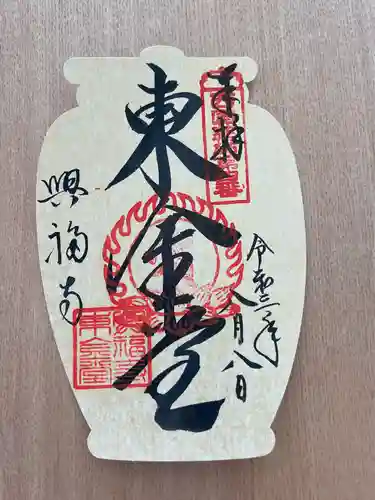 奉拝
令和二年
八月八日
東金堂
興福寺
興福寺
東金堂